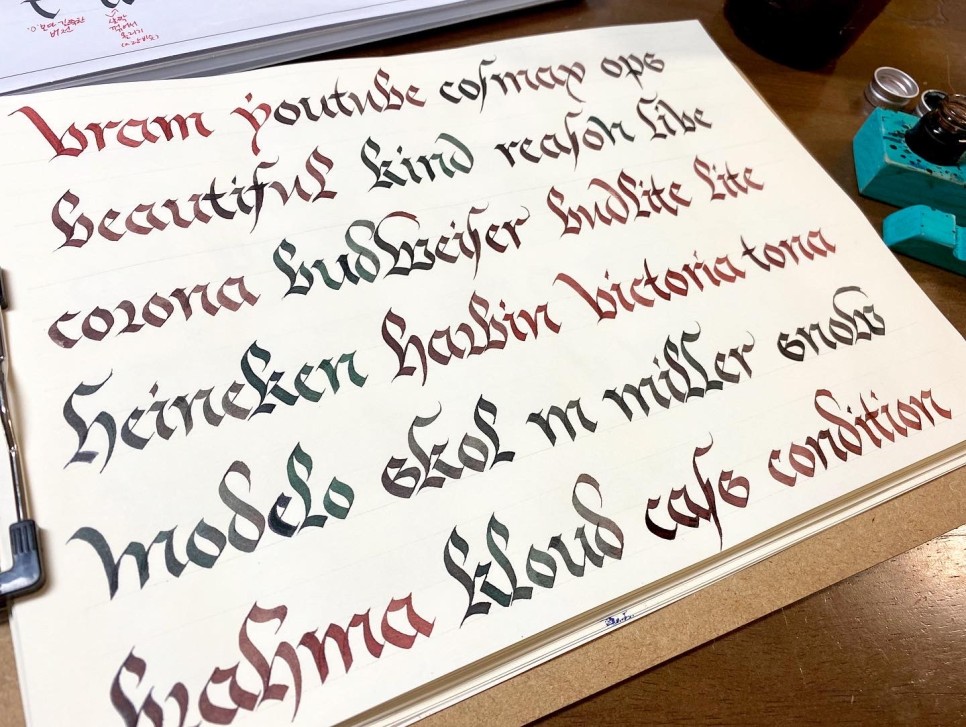 vram youtube cosmax ops
beautiful kind reason like
corona budweiser budlite lite
heineken harbin victoria tona
modelo skol m miller snow
brahma kloud cass condition